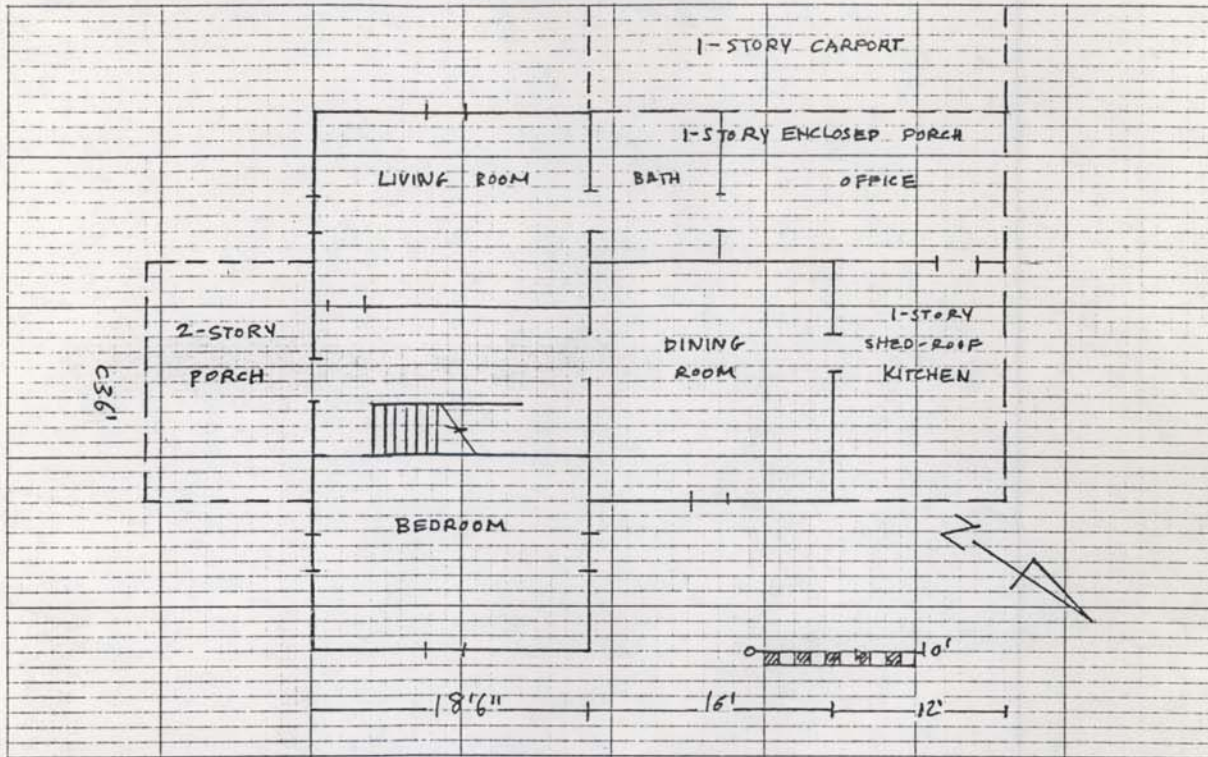 1-STORY CARPORT
1-STORY ENCLOSED PORCH
LIVING ROOM
BATH
OFFICE
2-STORY
PORCH
C36'
DINING
ROOM
1-STORY
SHED-ROOF
KITCHEN
BEDROOM
0
10'
18'6"
16'
12'